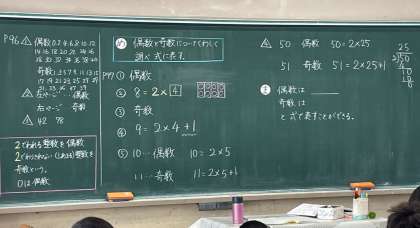 P96 △ 偶数 0, 2, 4, 6, 8, 10, 12
14 16 18 20 22 24 26
28 30 32 34 36 38 40
奇数 1, 3, 5, 7, 9, 11, 13, 15
17 19 21 23 25 27 29
31 33 35 37 39
ページ 偶数
右ページ 奇数
△ 42 78
2でわれる整数を偶数
2でわりきれない(1あまる)整数を
奇数という。
0は偶数
め 偶数と奇数についてくわしく
調べ 式に表す。
P97 ① 偶数
② 8=2×4
③ 奇数
④ 9=2×4+1
⑤ 10…偶数 10=2×5
11…奇数 11=2×5+1
50 偶数 50=2×25
51 奇数 51=2×25+1
25
2)50
4
10
10
偶数は
奇数は
と式で表すことができる。